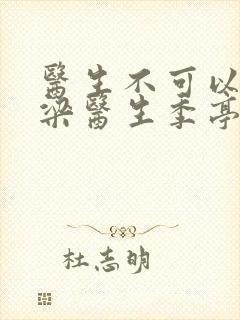 醫生不可以
梁醫生季亭
杜志明